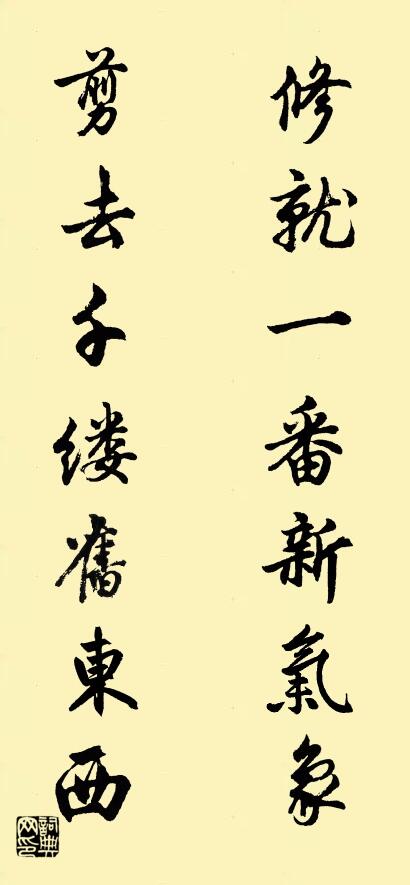 修就一番新氣象
剪去千缕舊東西
詞典网印